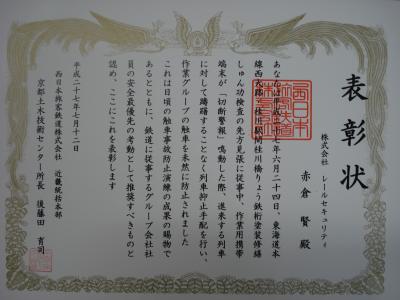 表彰状
株式会社 レールセキュリティ
赤倉 賢 殿
あなたは平成二十七年六月二十四日、東海道本
線西大路~桂川駅間桂川橋りょう鉄桁塗装修繕
しゅん功検査の先方見張に従事中、作業用携帯
端末が「切断警報」鳴動した際、進来する列車
に対して躊躇することなく列車抑止手配を行い、
作業グループの触車を未然に防止されました
これは日頃の触車事故防止演練の成果の賜物で
あるとともに、鉄道に従事するグループ会社社
員の安全最優先の考動として推奨すべきものと
認め、ここにこれを表彰します
平成二十七年七月十二日
西日本旅客鉄道株式会社 近畿統括本部
京都土木技術センター所長 後藤田 育司